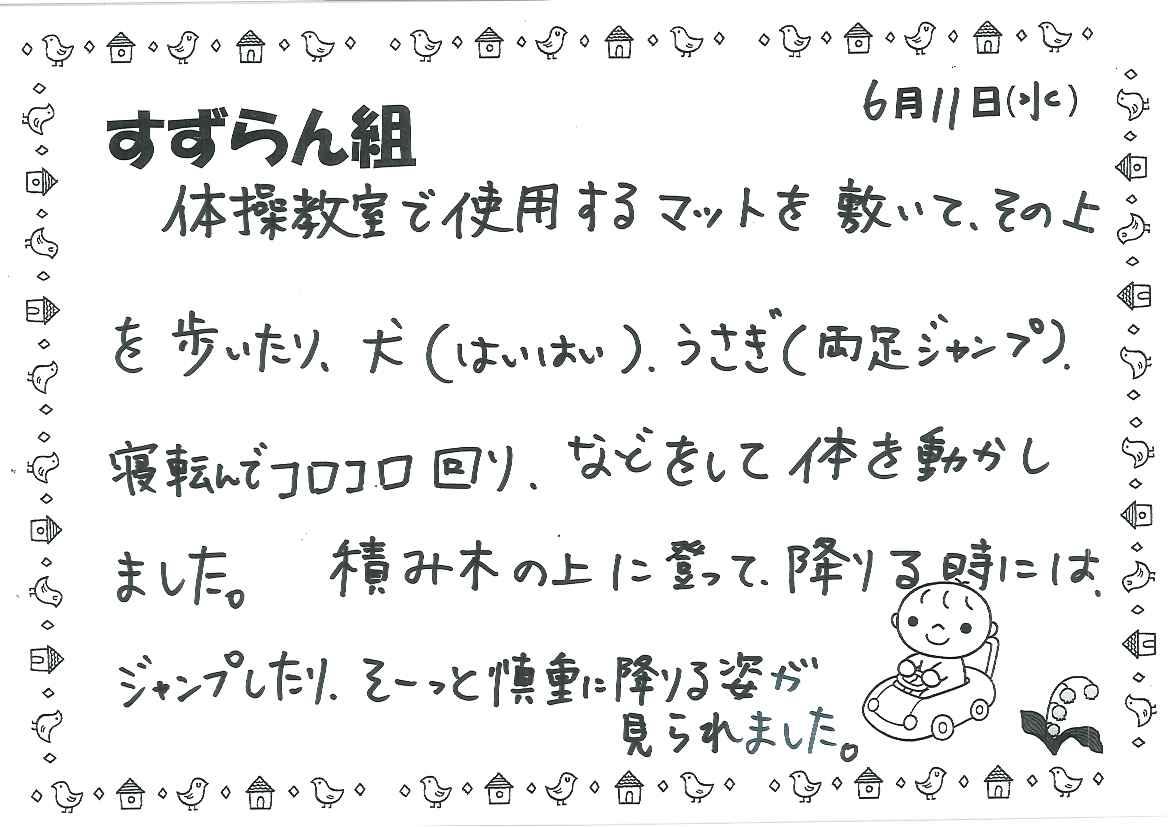 6月11日(水)
すずらん組
体操教室で使用するマットを敷いて、その上
を歩いたり、犬(はいはい)、うさぎ(両足ジャンプ)、
寝転んでコロコロ回り、などをして体を動かし
ました。 積み木の上に登って、降りる時には、
ジャンプしたり、そーっと慎重に降りる姿が
見られました。